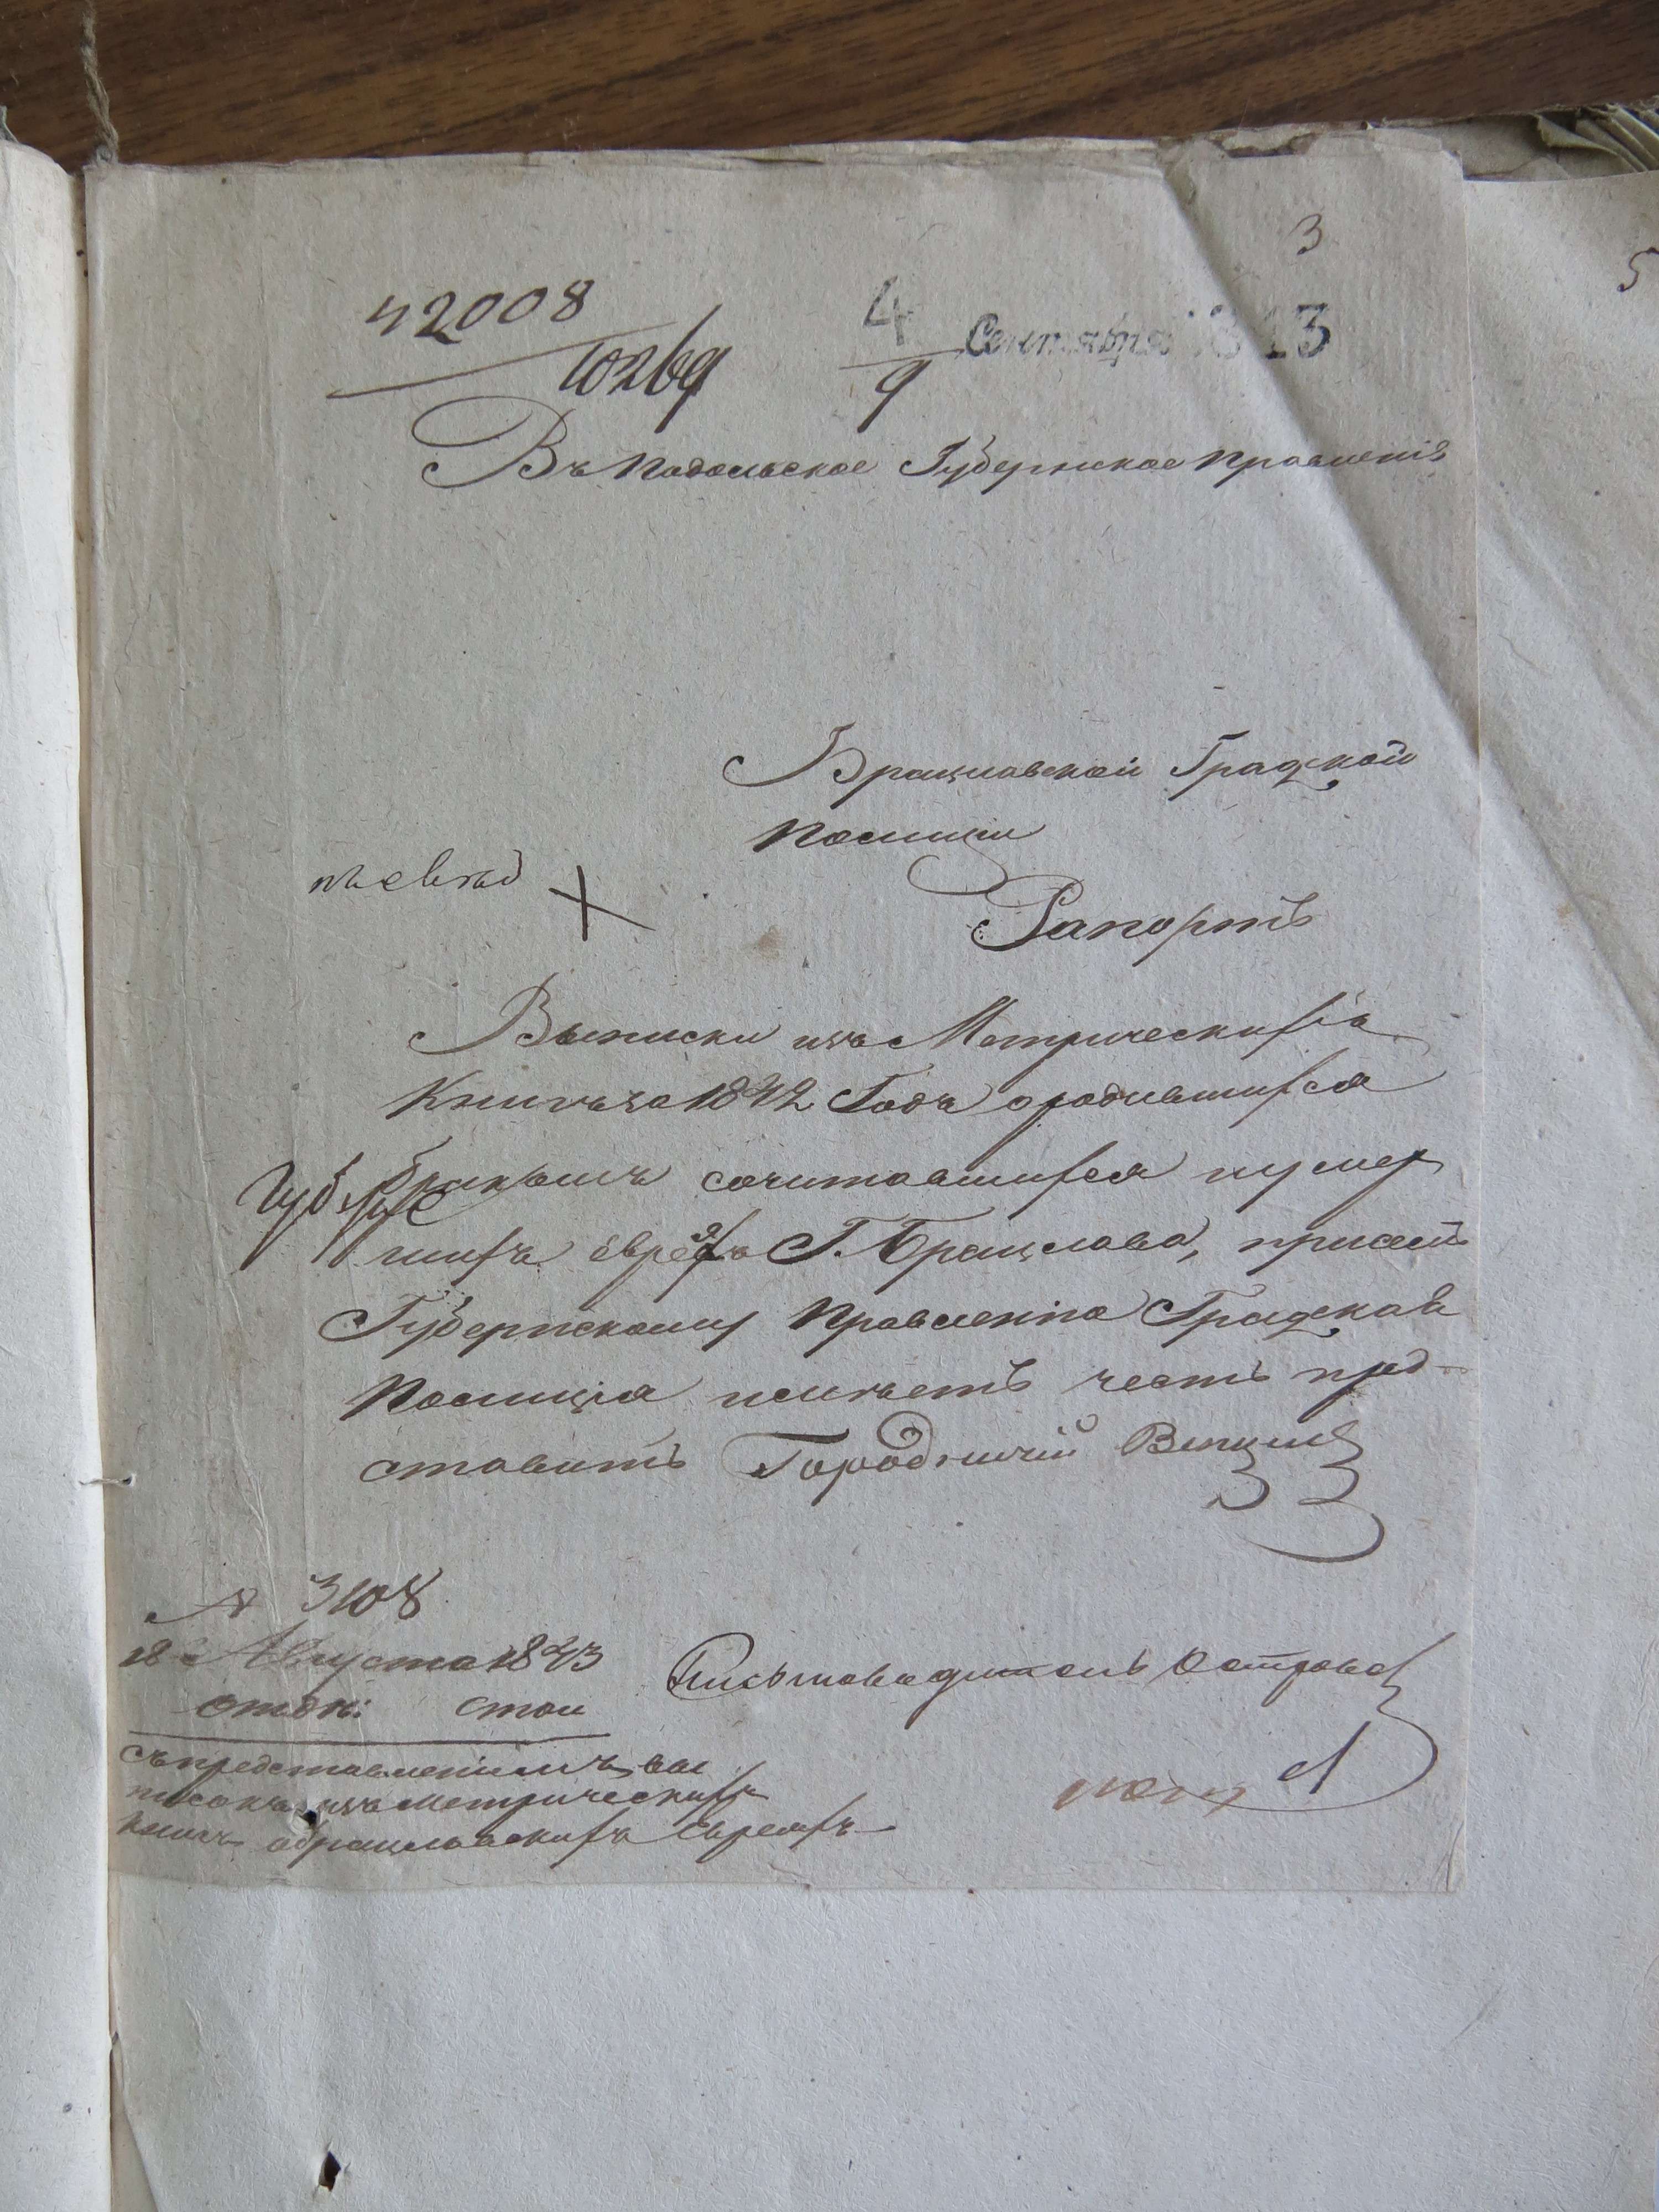 3
5
42008
10269
4 Сентября 1843
9
Въ Подольское Губернское Правленіе
Брацлавской Градской
Полиціи
Рапортъ
Выписки изъ Метрическихъ
Книгъ за 1842 Годъ о родившихся
бракомъ сочитавшихся и умер
шихъ евреяхъ Г. Брацлава, при семъ
Губернскому Правленію Градская
Полиція имѣетъ честь пред-
ставить Городничій
№ 3108
18 Августа 1843
отдѣ: стол
Письмоводитель
съ представленіемъ вы
писокъ изъ Метрическихъ
книгъ о брацлавскихъ Евреяхъ